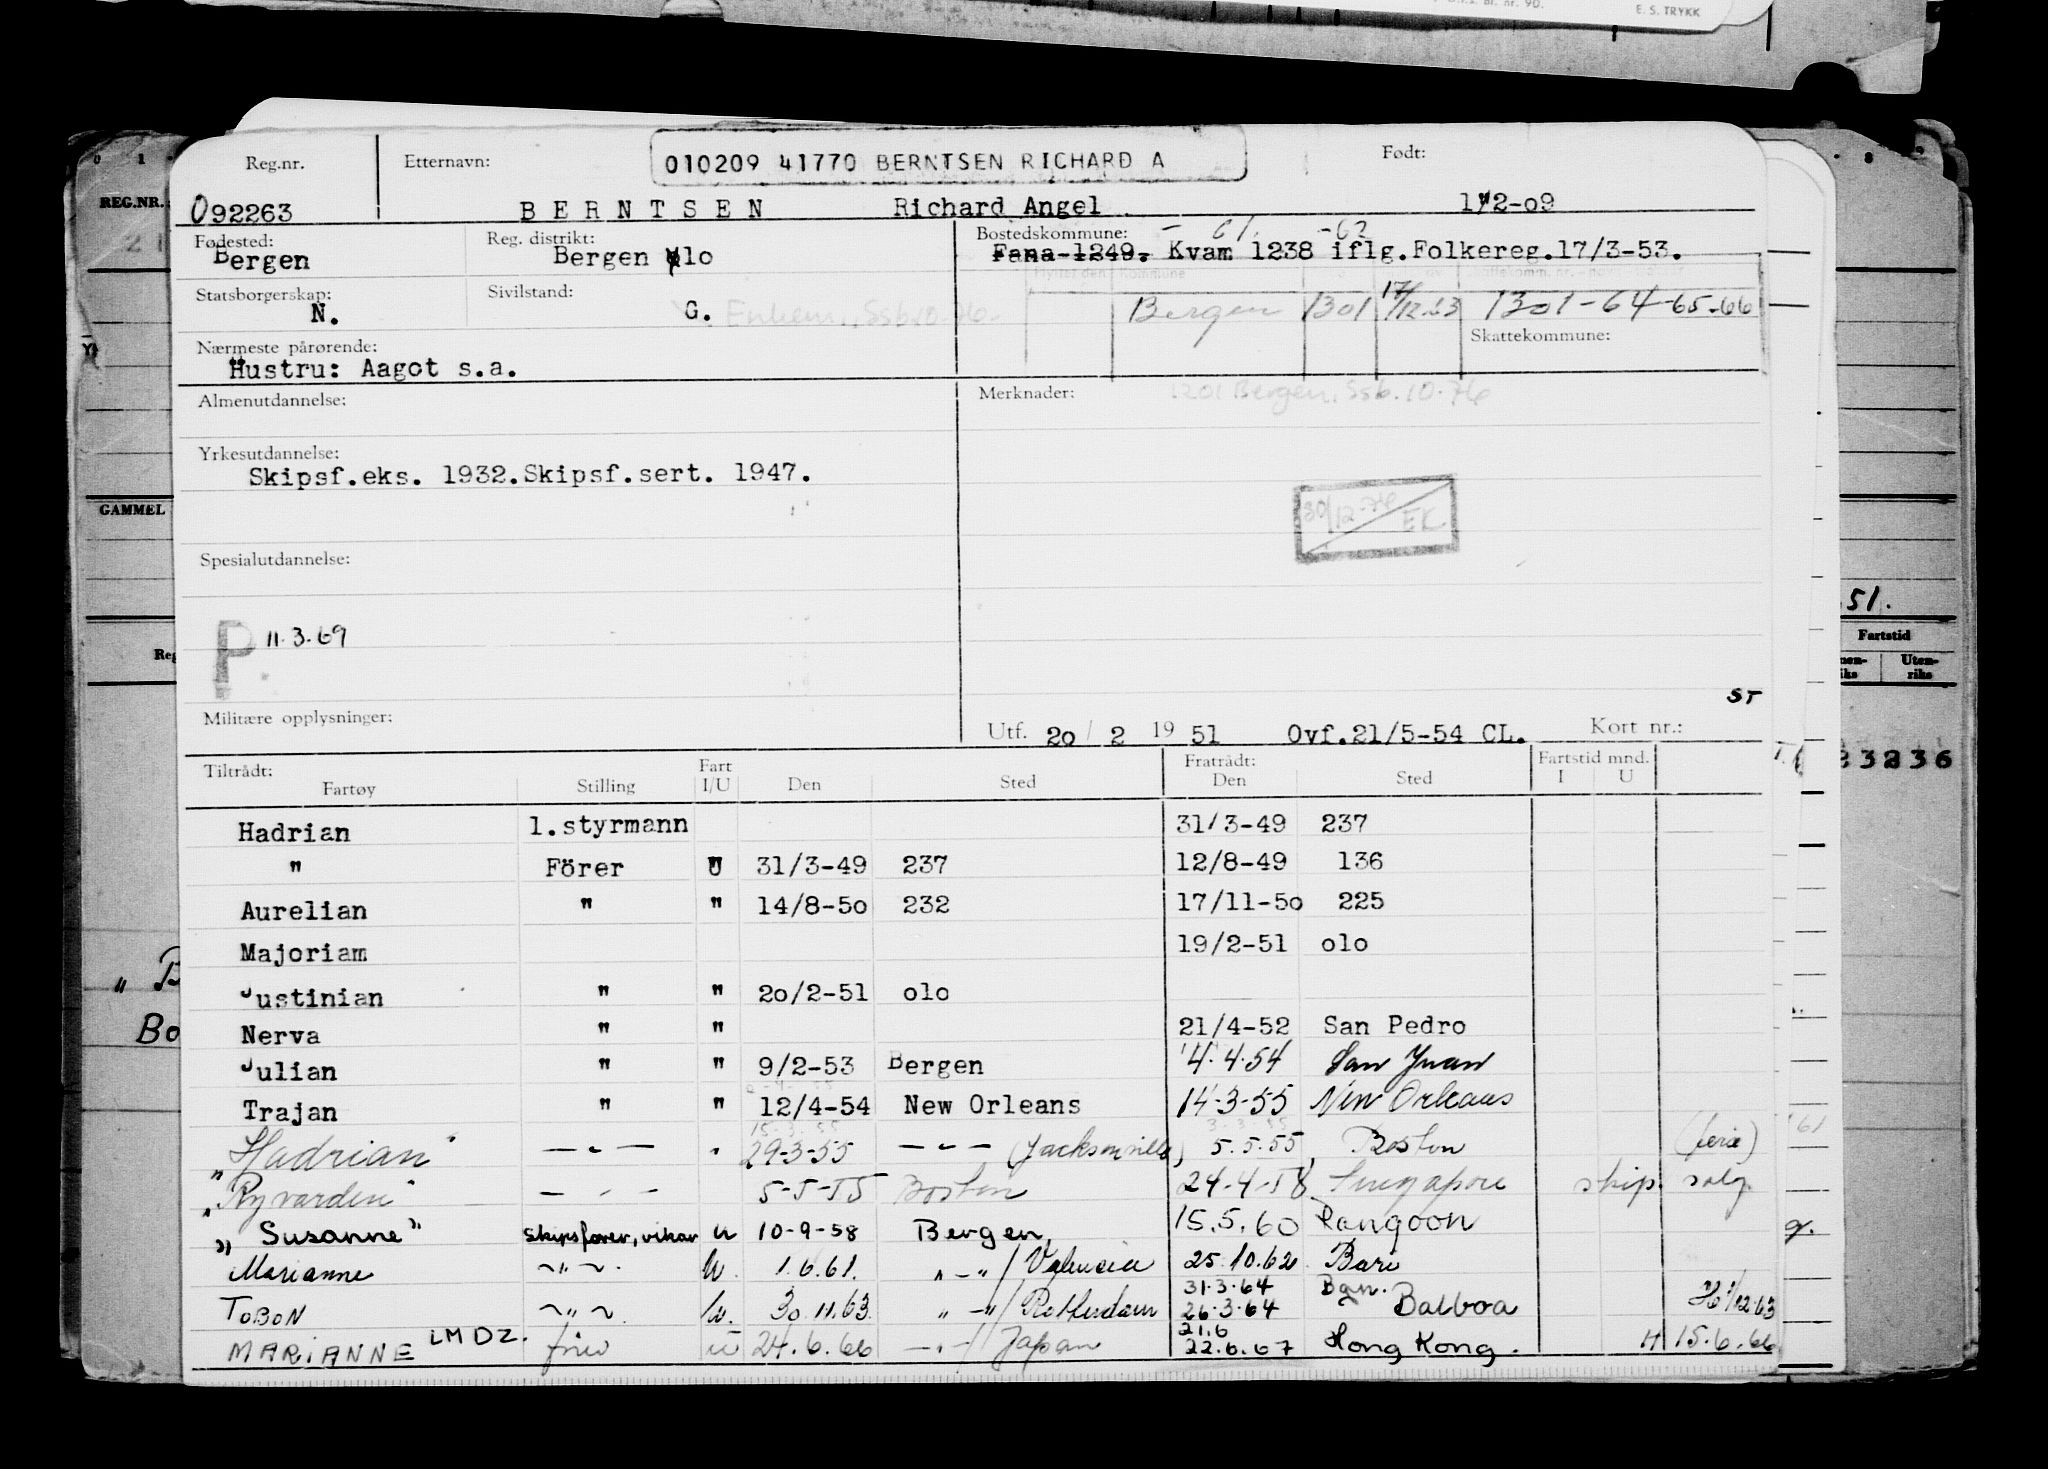 E. S. TRYKK
REG.NR.
GAMMEL
51.
Fartstid
Uten-
riks
23236
Reg.nr. Etternavn: 010209 41770 BERNTSEN RICHARD A Født:
092263 BERNTSEN Richard Angel 1/2-09
Fødested: Reg. distrikt: Bostedskommune: - 61. -62
Bergen Bergen olo Fana-1249. Kvam 1238 iflg.Folkereg.17/3-53.
Statsborgerskap: Sivilstand:
N. G. Bergen 1301 17/12.63 1301-64-65-66
Nærmeste pårørende: Skattekommune:
Hustru: Aagot s.a.
Almenutdannelse: Merknader: 1201 Bergen, Ssb. 10.76
Yrkesutdannelse:
Skipsf.eks. 1932.Skipsf.sert. 1947.
30/12-76 EK
Spesialutdannelse:
P 11.3.69
ST
Militære opplysninger: Utf. 20/2 1951 Ovf.21/5-54 CL. Kort nr.:
Tiltrådt: Fart Fratrådt: Fartstid mnd.
Fartøy Stilling I/U Den Sted Den Sted I U
Hadrian 1.styrmann 31/3-49 237
" Förer U 31/3-49 237 12/8-49 136
Aurelian " " 14/8-50 232 17/11-50 225
Majoriam 19/2-51 olo
Justinian " " 20/2-51 olo
Nerva " " 21/4-52 San Pedro
Julian " " 9/2-53 Bergen 4.4.54 San Juan
Trajan " " 12/4-54 New Orleans 14-3-55 New Orleans
"Hadrian" — " — " 29-3-55 — " — (Jacksonville) 5.5.55, Boston (ferie)
"Ryvarden" — " — 5-5-55 Boston 24-4-58 Singapore skip. salg.
"Susanne" skipsfører, vikar u 10-9-58 Bergen, 15.5.60 Rangoon
Marianne ~ " ~ u. 1.6.61. " - " / Valencia 25.10.62 Bari
31.3.64 Bgn.
TOBON ~ " ~ u. 30.11.63. " - " / Rotterdam 26.3.64 Balboa
21.6
MARIANNE LMDZ. fører u 24.6.66 - " - / Japan 22.6.67 Hong Kong. H 15.6.66